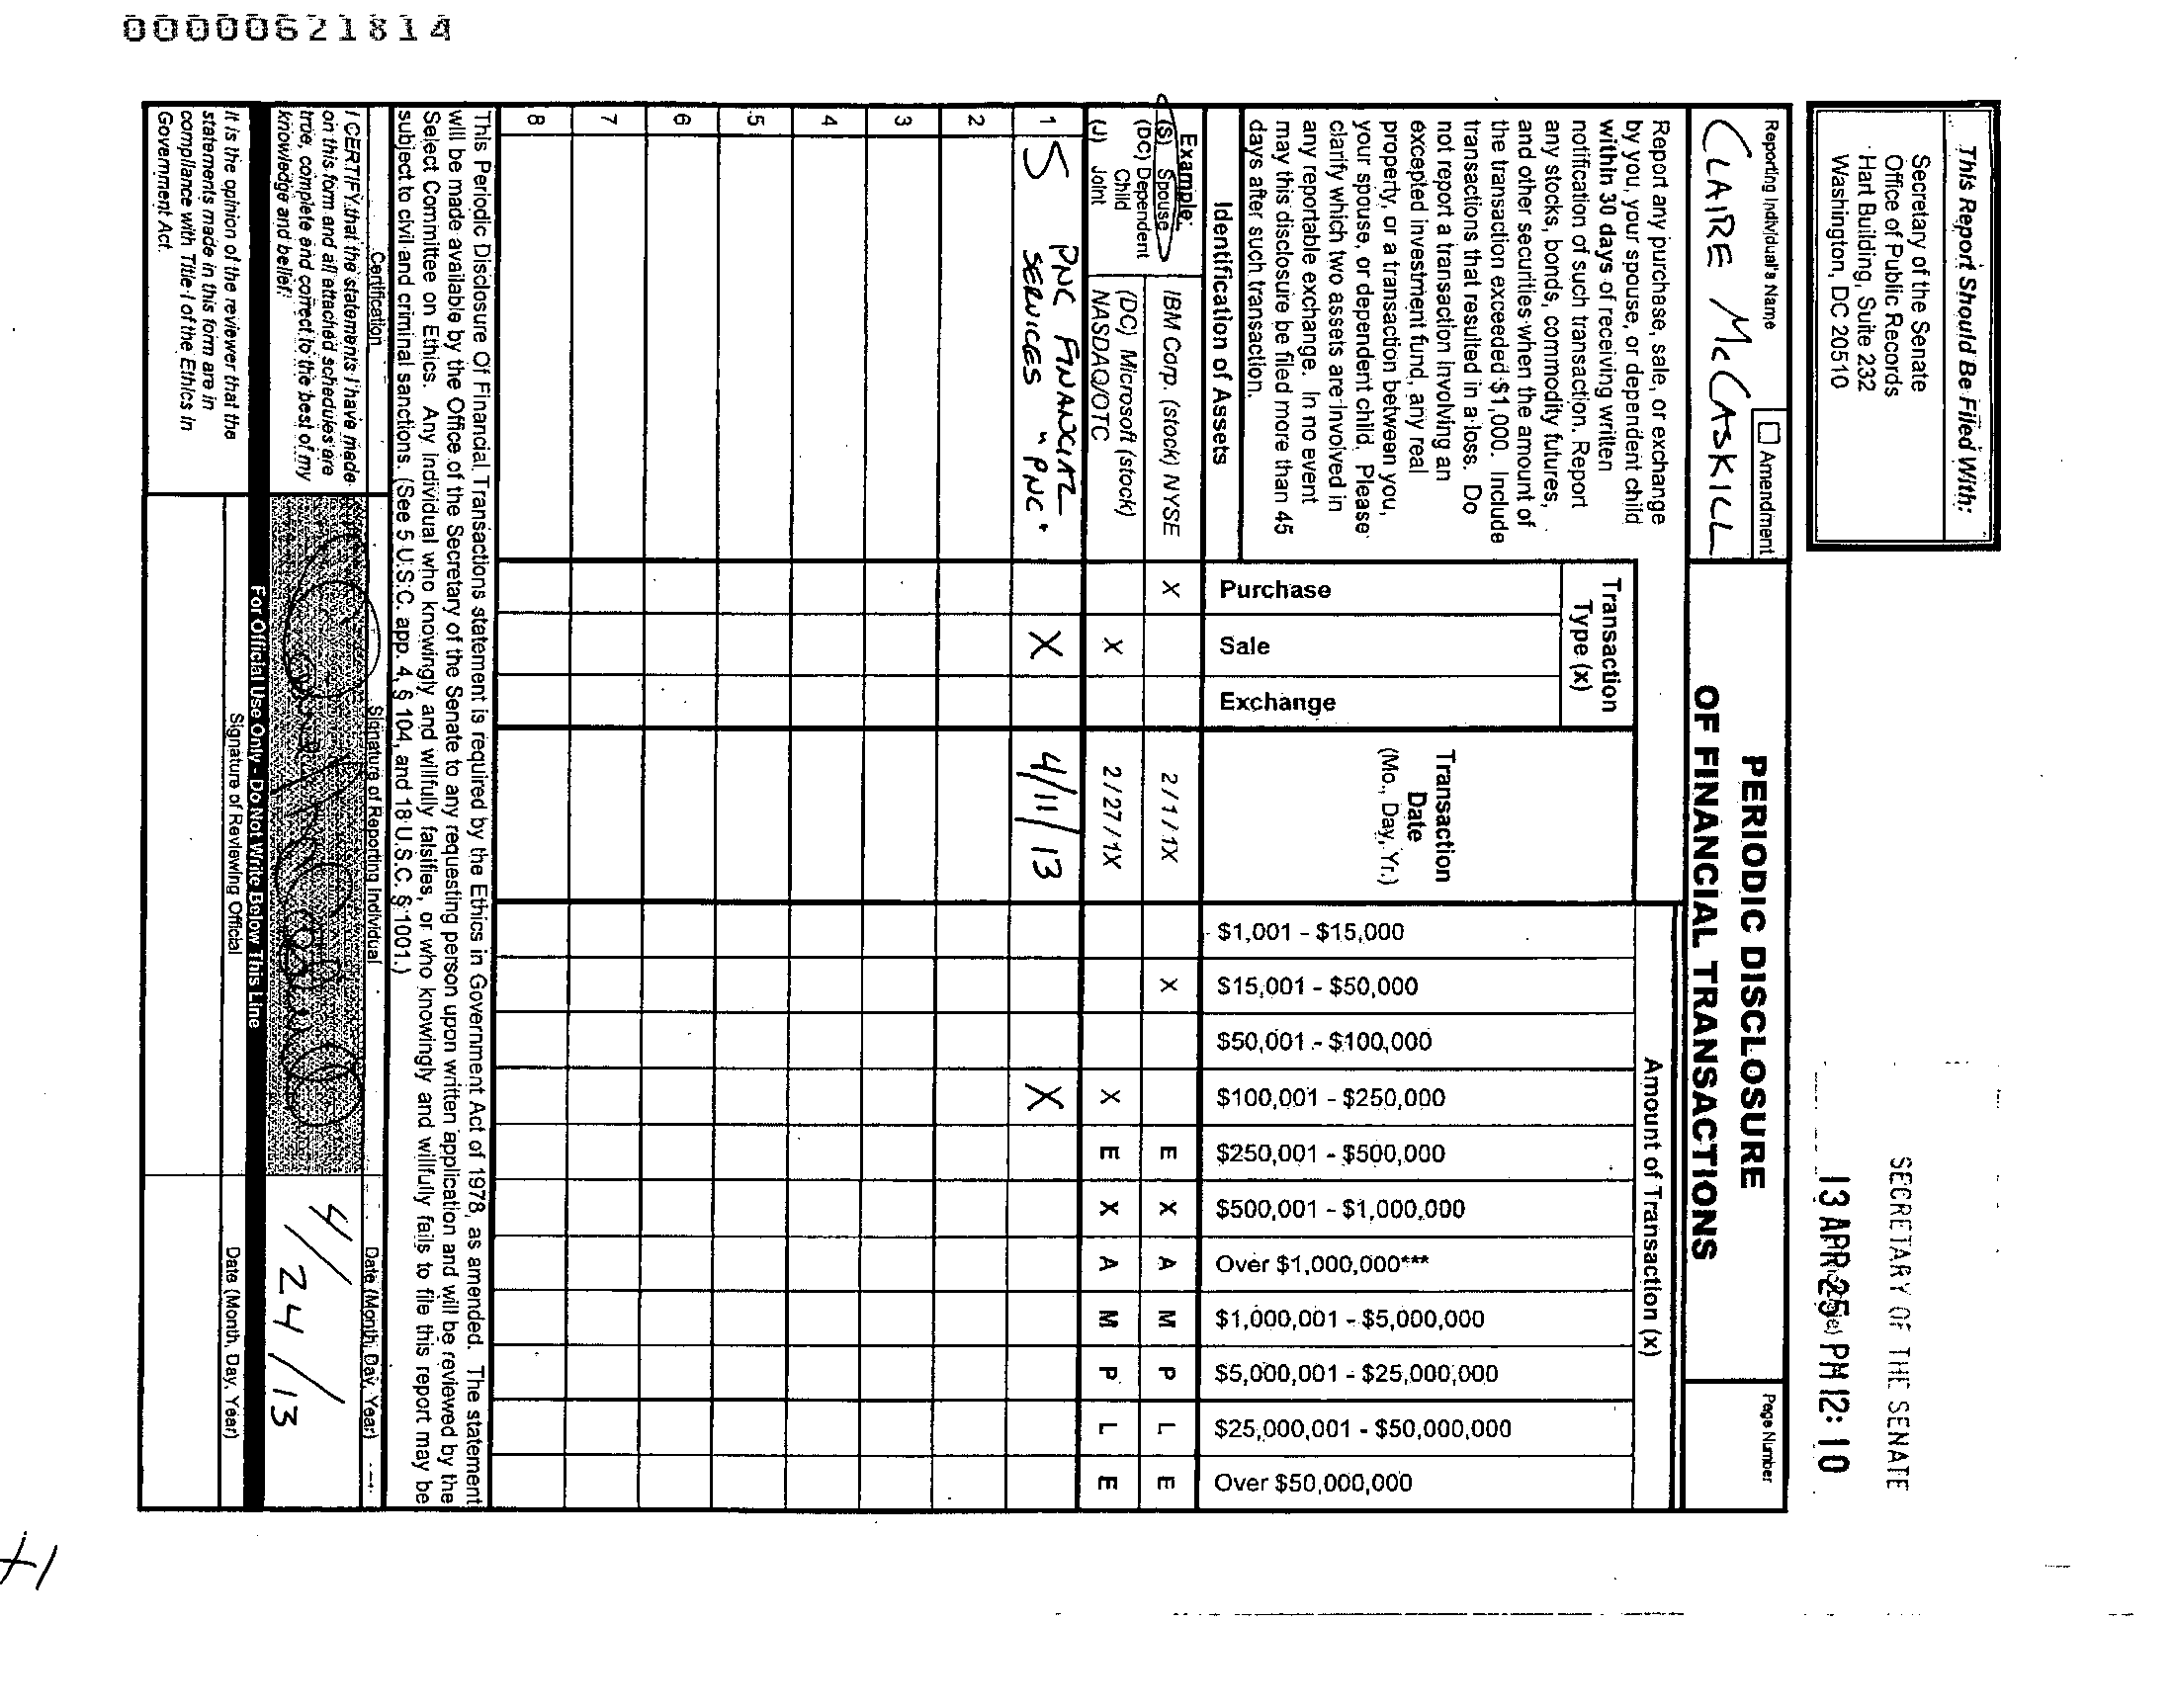 00000621814
This Report Should Be Filed With:
Secretary of the Senate
Office of Public Records
Hart Building, Suite 232
Washington, DC 20510
SECRETARY OF THE SENATE
13 APR 25 PM 12: 10
Reporting Individual's Name
Amendment
CLAIRE McCASKILL
PERIODIC DISCLOSURE
OF FINANCIAL TRANSACTIONS
Page Number
Report any purchase, sale, or exchange
by you, your spouse, or dependent child
within 30 days of receiving written
notification of such transaction. Report
any stocks, bonds, commodity futures,
and other securities when the amount of
the transaction exceeded $1,000. Include
transactions that resulted in a loss. Do
not report a transaction involving an
excepted investment fund, any real
property, or a transaction between you,
your spouse, or dependent child. Please
clarify which two assets are involved in
any reportable exchange. In no event
may this disclosure be filed more than 45
days after such transaction.
Transaction
Type (x)
Transaction
Date
(Mo., Day, Yr.)
Amount of Transaction (x)
Identification of Assets
Purchase
Sale
Exchange
$1,001 - $15,000
$15,001 - $50,000
$50,001 - $100,000
$100,001 - $250,000
$250,001 - $500,000
$500,001 - $1,000,000
Over $1,000,000***
$1,000,001 - $5,000,000
$5,000,001 - $25,000,000
$25,000,001 - $50,000,000
Over $50,000,000
Example:
(S) Spouse
(DC) Dependent
Child
(J) Joint
IBM Corp. (stock) NYSE X 2/1/1X X E X A M P L E
(DC) Microsoft (stock)
NASDAQ/OTC X 2/27/1X X E X A M P L E
1 S PNC FINANCIAL
SERVICES "PNC" X 4/11/13 X
2
3
4
5
6
7
8
This Periodic Disclosure Of Financial Transactions statement is required by the Ethics in Government Act of 1978, as amended. The statement
will be made available by the Office of the Secretary of the Senate to any requesting person upon written application and will be reviewed by the
Select Committee on Ethics. Any individual who knowingly and willfully falsifies, or who knowingly and willfully fails to file this report may be
subject to civil and criminal sanctions. (See 5 U.S.C. app. 4, § 104, and 18 U.S.C. § 1001.)
Certification
Signature of Reporting Individual
Date (Month, Day, Year)
I CERTIFY that the statements I have made
on this form and all attached schedules are
true, complete and correct to the best of my
knowledge and belief.
4/24/13
For Official Use Only - Do Not Write Below This Line
It is the opinion of the reviewer that the
statements made in this form are in
compliance with Title I of the Ethics in
Government Act.
Signature of Reviewing Official
Date (Month, Day, Year)